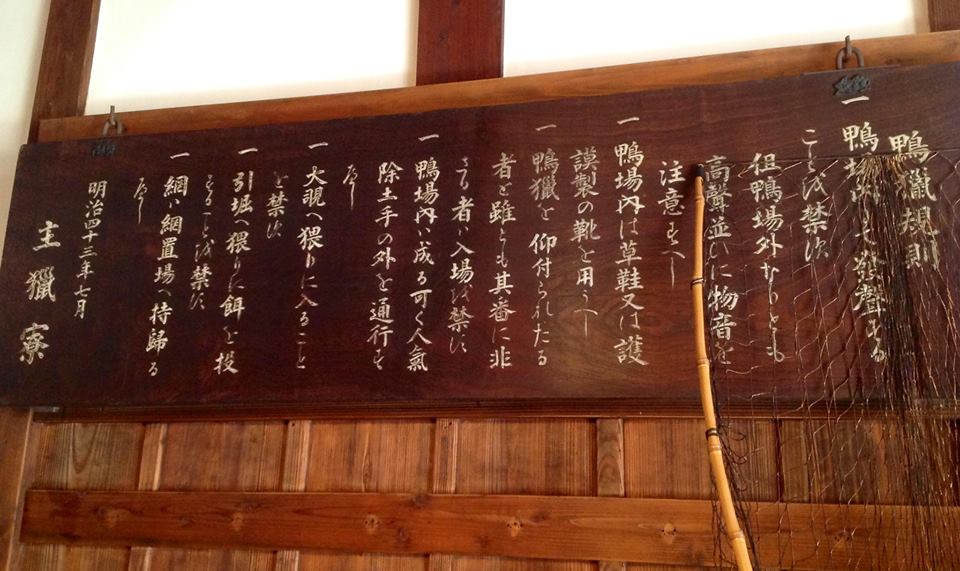 鴨獵規則
一 鴨場内にて發聲する
ことを禁ず
但鴨場外なりとも
高聲並ひに物音を
注意すへし
一 鴨場内は草鞋又は護
謨製の靴を用うへし
一 鴨獵を仰付られたる
者と雖とも其番に非
さる者ハ入場を禁ず
一 鴨場内ハ成る可く人氣
除土手の外を通行す
へし
一 大覗へ猥りに入ること
を禁ず
一 引堀猥りに餌を投
することを禁ず
一 網ハ網置場へ持歸る
へし
明治四十三年七月
主獵寮